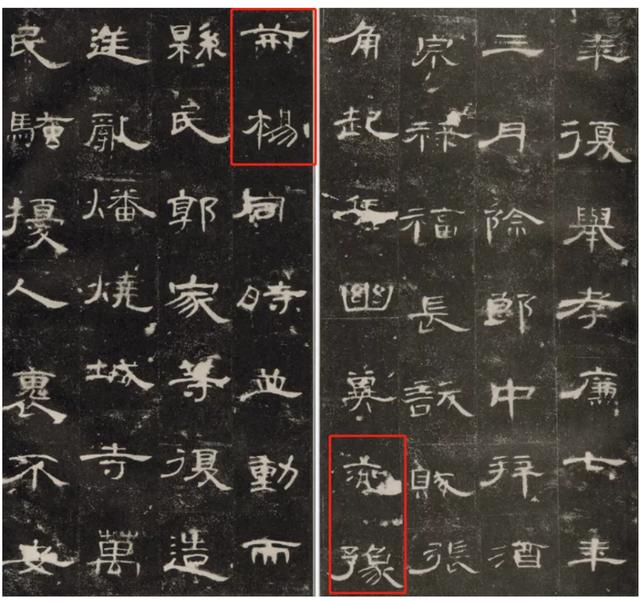 年復舉孝廉七年
三月除郎中拜酒
宗祿福長訞賊張
角起兵幽冀兗豫
荊楊同時並動而
縣民郭家等復造
逆亂燔燒城寺萬
民騷擾人裹不安